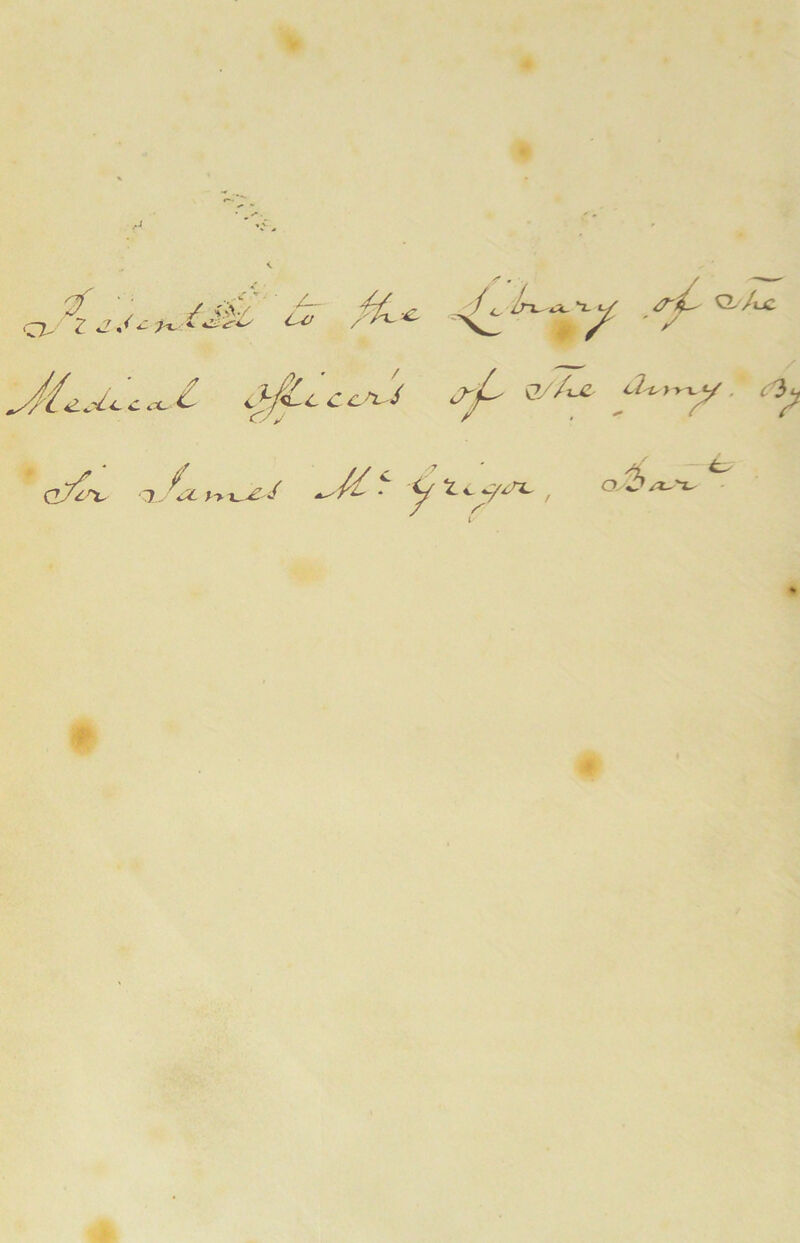 Presented to the Library of The
Medical Officers of The Army. By
Sir James McGrigor, Bart